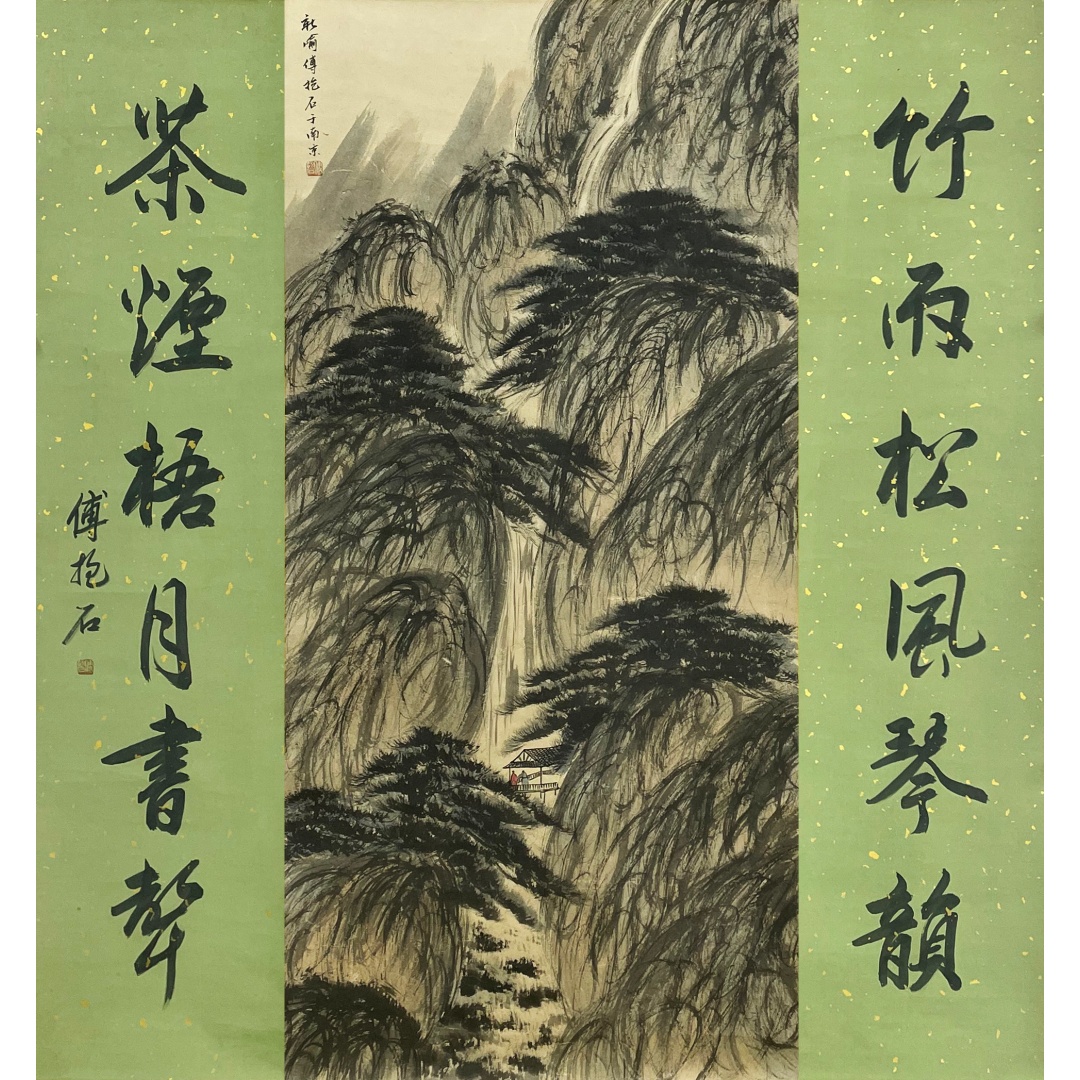 竹雨松風琴韻
新喻傅抱石于南京
茶煙梧月書聲
傅抱石